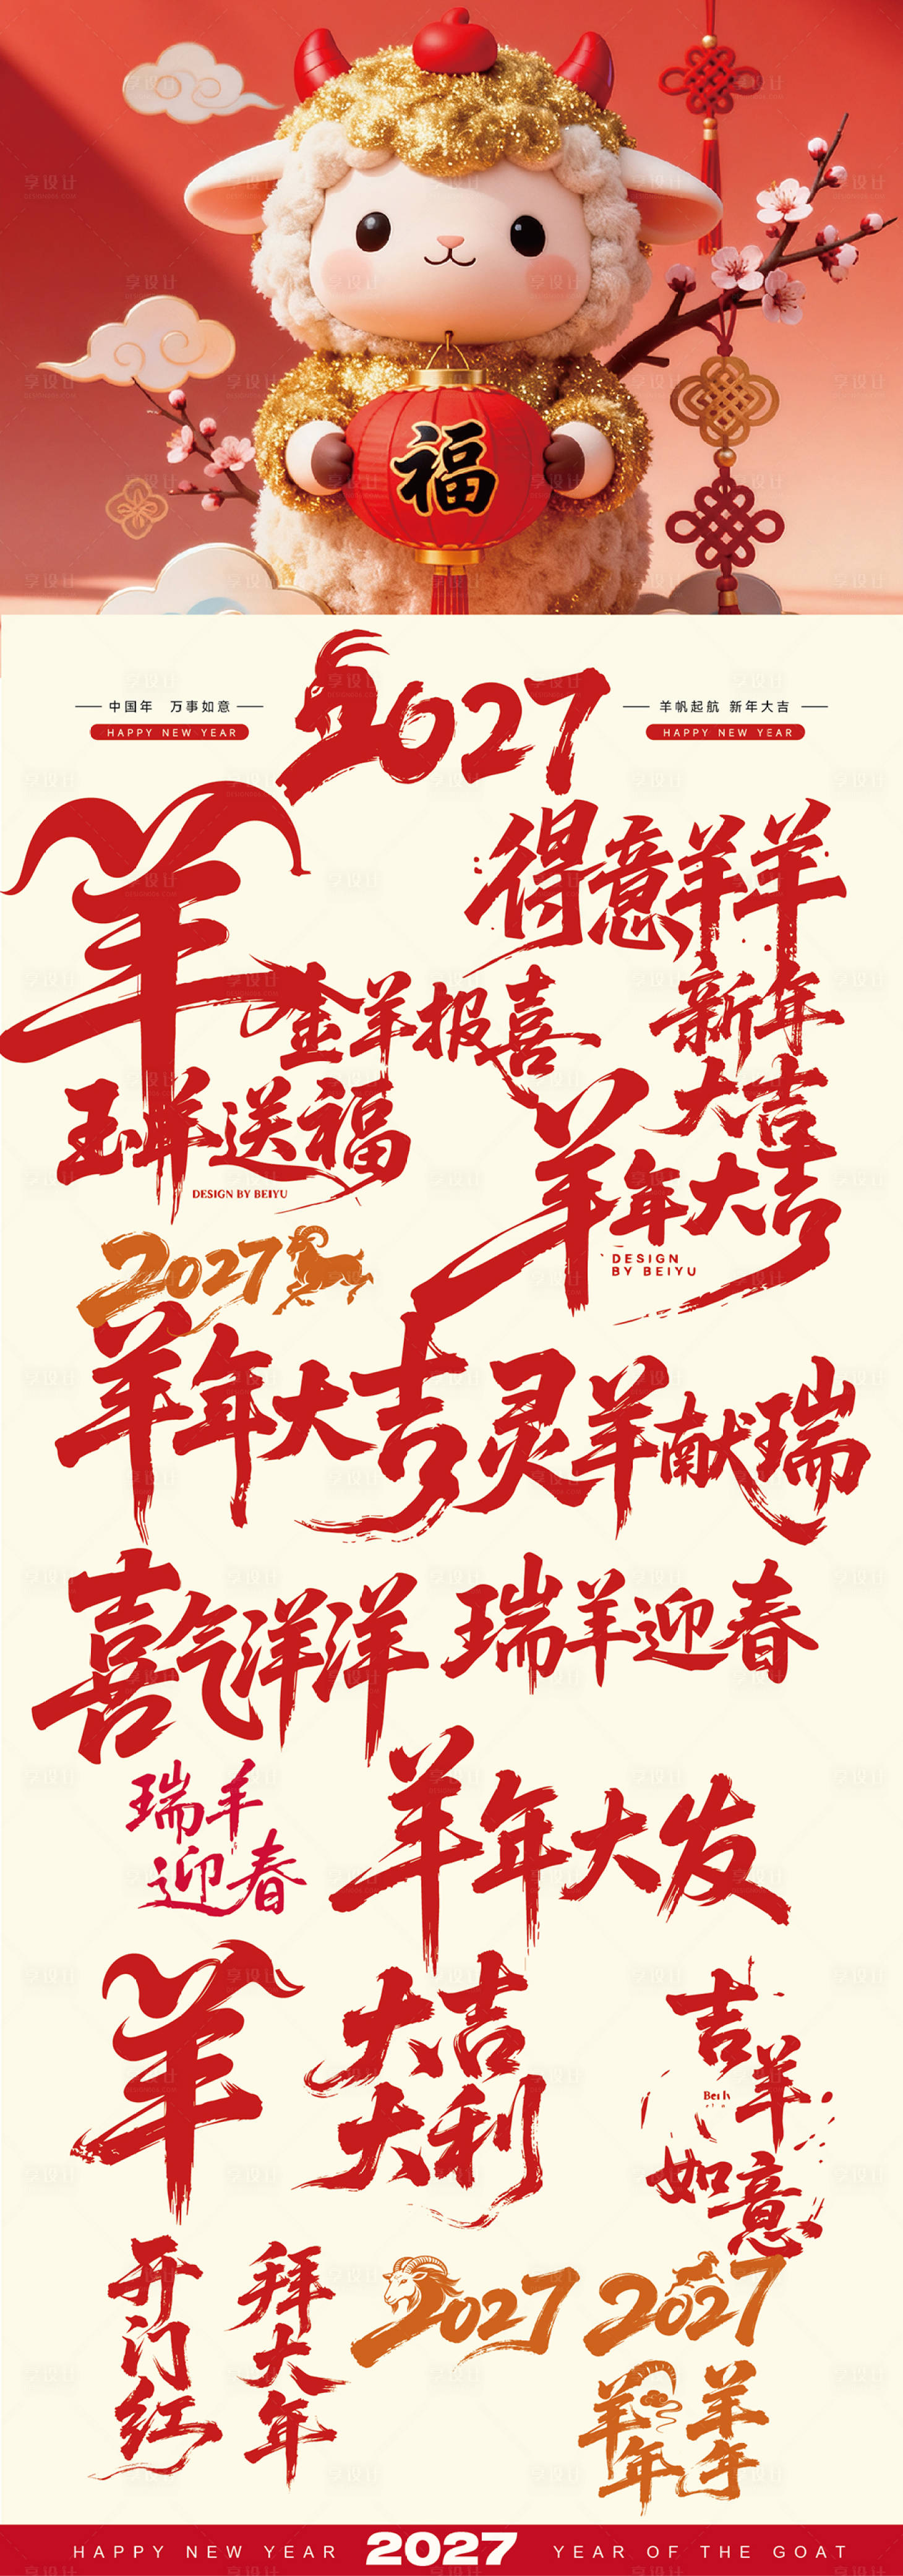 福
2027
中国年 万事如意
HAPPY NEW YEAR
羊帆起航 新年大吉
HAPPY NEW YEAR
羊
得意羊羊
金羊报喜
新年
大吉
玉羊送福
DESIGN BY BEIYU
羊年大吉
DESIGN
BY BEIYU
2027
羊年大吉
灵羊献瑞
喜气洋洋
瑞羊迎春
瑞羊
迎春
羊年大发
羊
大吉
大利
吉羊
如意
开门红
拜大年
2027
2027
羊年
羊年
HAPPY NEW YEAR 2027 YEAR OF THE GOAT
享设计